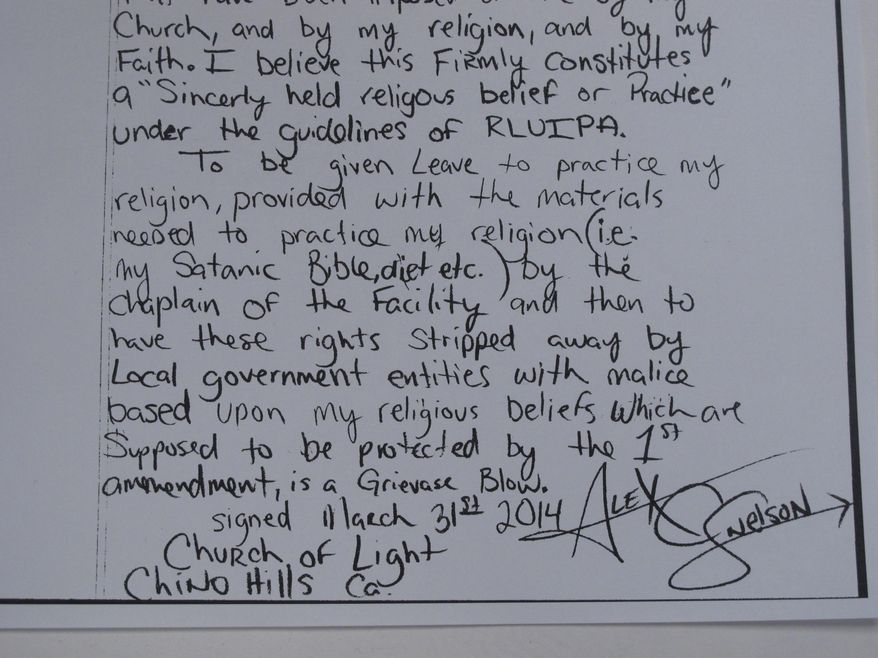 have been imposed by my
Church, and by my religion, and by my
Faith. I believe this Firmly constitutes
a "Sincerly held religous belief or Practice"
under the guidelines of RLUIPA.
To be given Leave to practice my
religion, provided with the materials
needed to practice my religion (i.e.
my Satanic Bible, diet etc.) by the
chaplain of the Facility and then to
have these rights Stripped away by
Local government entities with malice
based upon my religious beliefs which are
Supposed to be protected by the 1st
ammendment, is a Grievase Blow.
signed March 31st 2014 ALEX SNELSON
Church of Light
Chino Hills Ca.